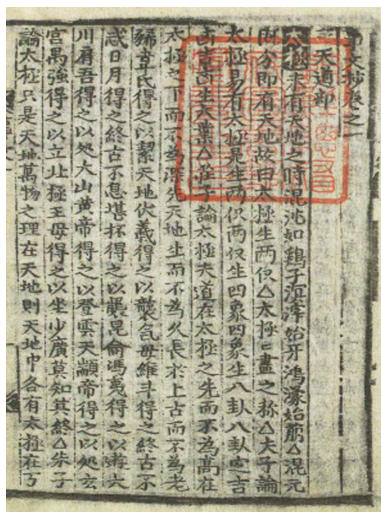 文抄卷之一
天道部
太極未有天地之時混沌如鷄子溟涬始牙鴻濛始萌△混元
既分即有天地故曰太極生兩仪△太極已盡之称△夫子論
太極易有太極是生兩仪兩仪生四象四象生八卦八卦定吉
凶吉凶生大業△莊子論太極夫道在太極之先而不為高在
太極之下而不為深先天地生而不為久長於上古而不為老
豨韋氏得之以挈天地伏羲得之以襲氣母維斗得之終古不
忒日月得之終古不息堪抔得之以襲昆侖馮夷得之以游大
川肩吾得之以処大山黄帝得之以登雲天顓帝得之以処玄
宮禺強得之以立北極王母得之以坐少廣莫知其終△朱子
論太極只是天地萬物之理在天地則天地中各有太極在万